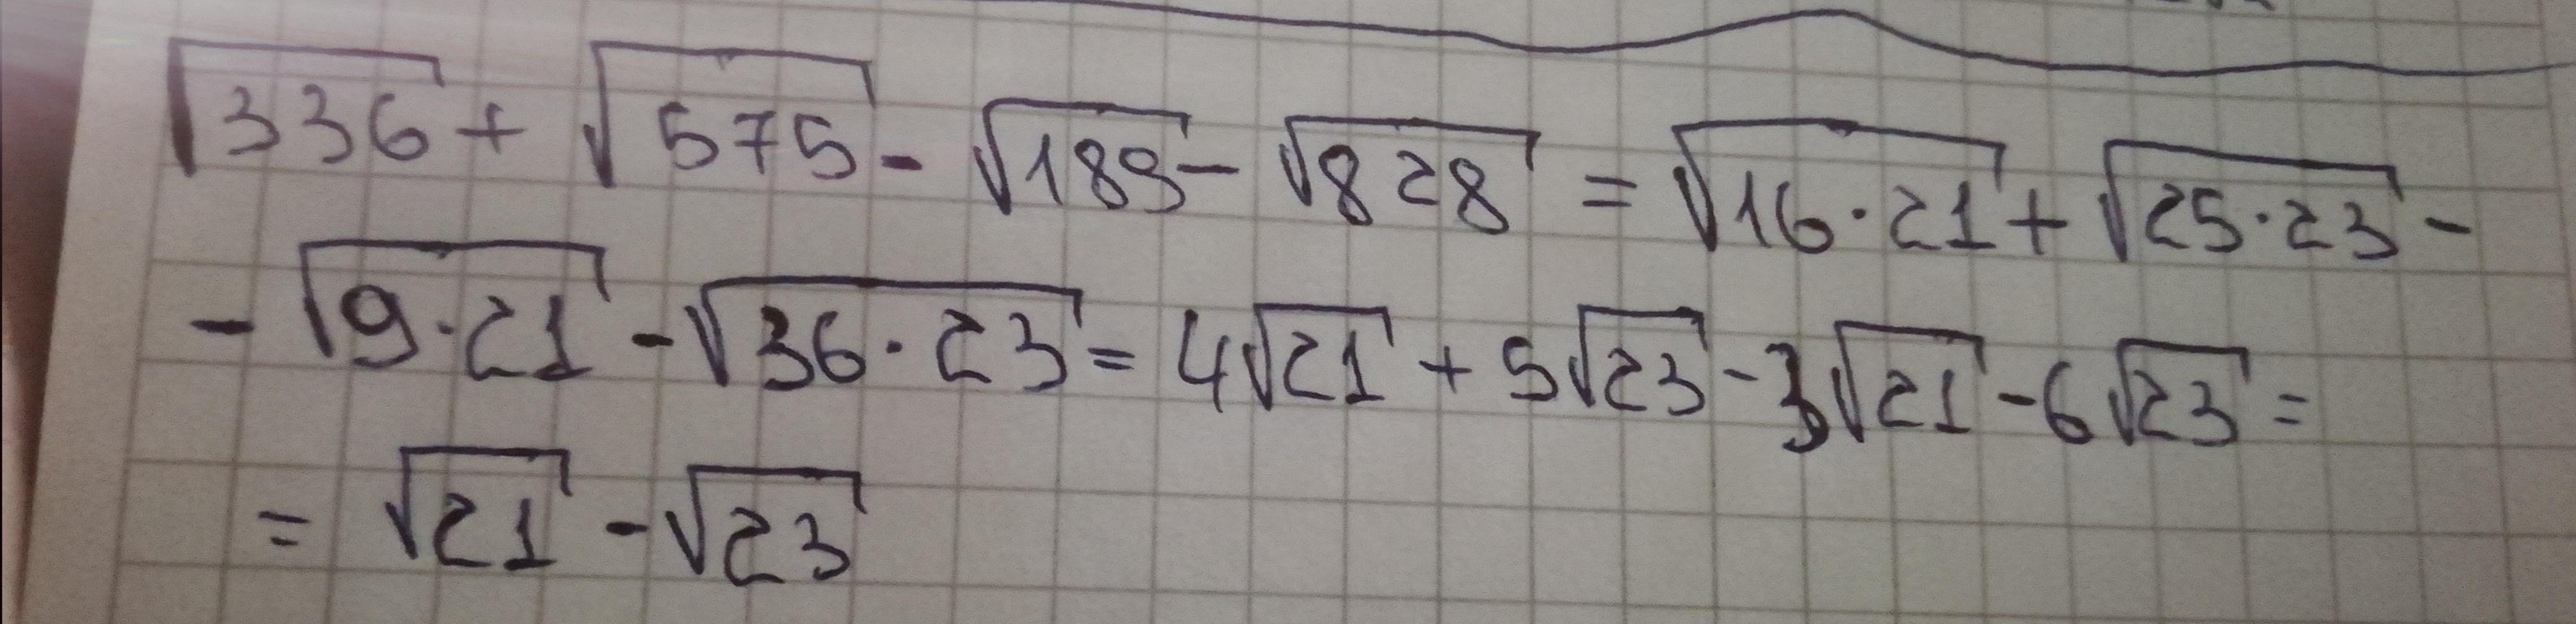 √336 + √575 - √189 - √828 = √16·21 + √25·23 -
- √9·21 - √36·23 = 4√21 + 5√23 - 3√21 - 6√23 =
= √21 - √23